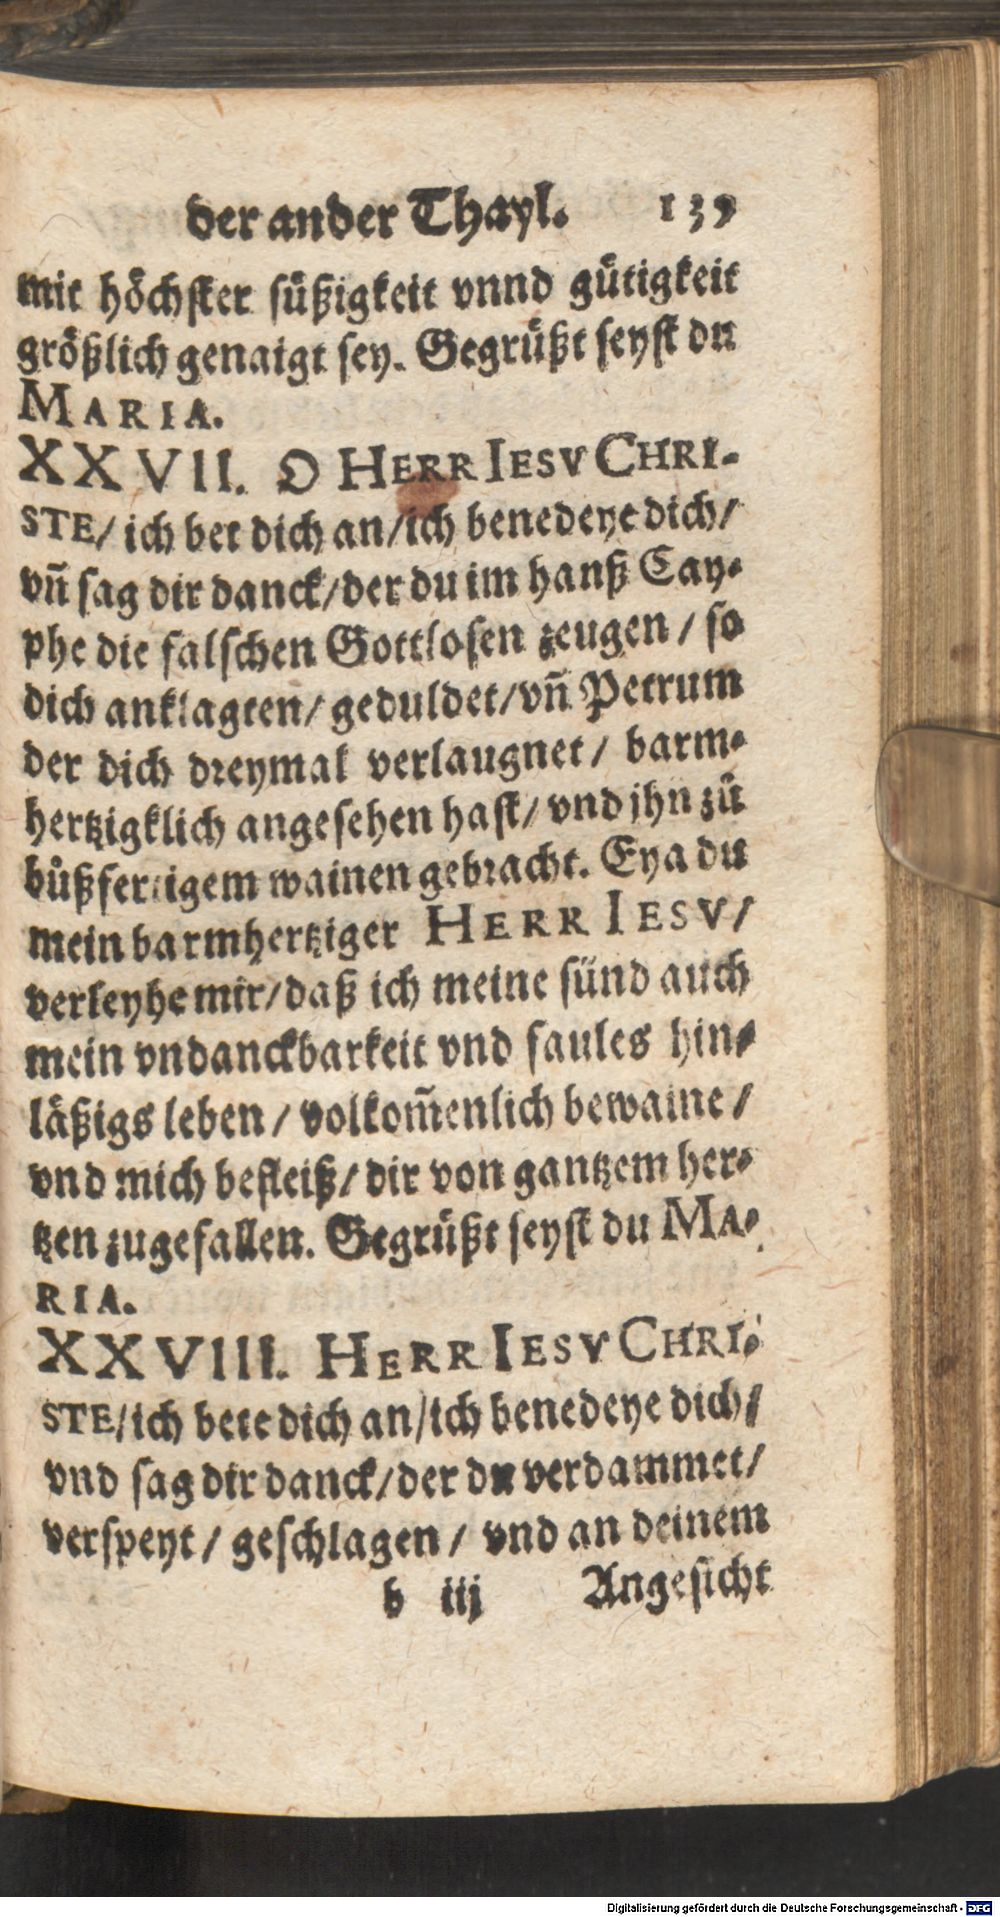 der ander Thayl. 139
mit höchster süßigkeit vnnd gütigkeit
größlich genaigt sey. Gegrüßt seyst du
MARIA.
XXVII. O HERR IESV CHRI-
STE/ ich bet dich an/ich benedeye dich/
vñ sag dir danck/der du im hauß Cay-
phe die falschen Gottlosen zeugen / so
dich anklagten/ geduldet/vñ Petrum
der dich dreymal verlaugnet/ barm-
hertzigklich angesehen hast/ vnd jhn zů
bůßfertigem wainen gebracht. Eya du
mein barmhertziger HERR IESV/
verleyhe mir/daß ich meine sünd auch
mein vndanckbarkeit vnd faules hin-
läßigs leben / volkom̃enlich bewaine /
vnd mich befleiß/ dir von gantzem her-
tzen zugefallen. Gegrüßt seyst du MA-
RIA.
XXVIII. HERR IESV CHRI-
STE/ich bete dich an/ich benedeye dich/
vnd sag dir danck/der du verdammet/
verspeyt / geschlagen / vnd an deinem
b iij Angesicht
Digitalisierung gefördert durch die Deutsche Forschungsgemeinschaft - DFG